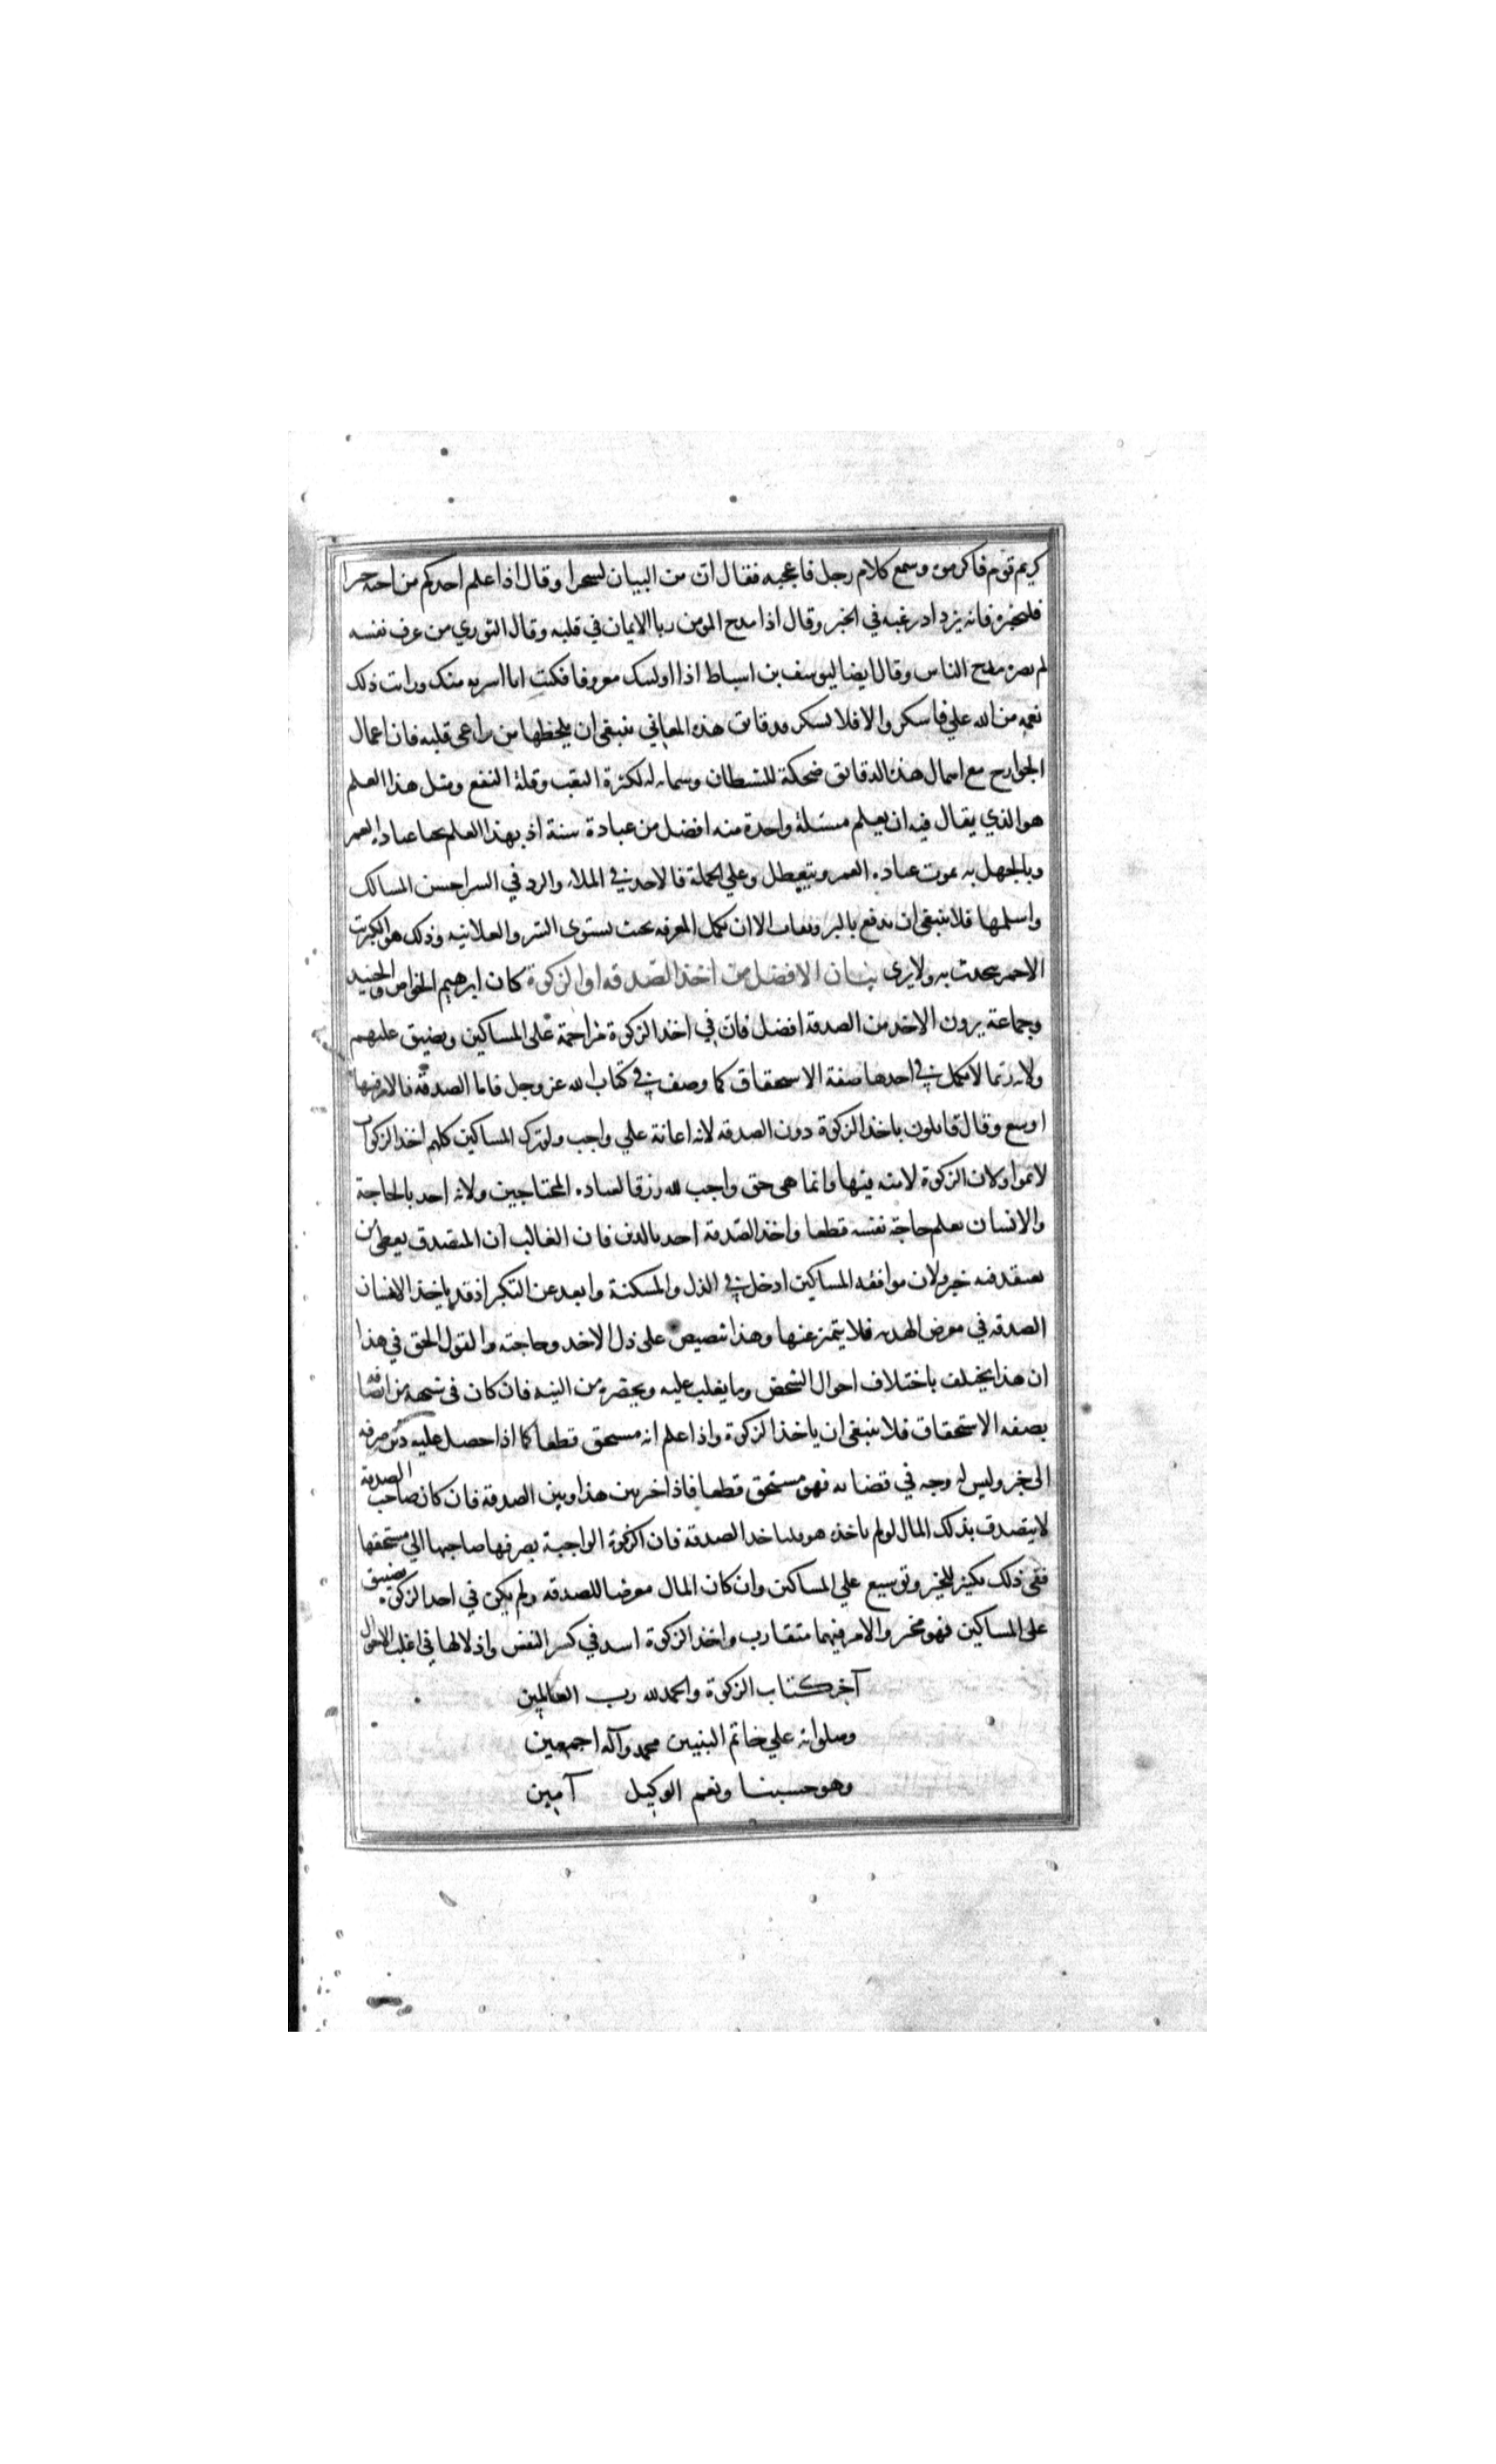 كريم قوم فاكرموه وسمع كلام رجل فاعجبه فقال ان من البيان لسحرا وقال اذا علم احدكم من اخيه خيرا
فليخبره فانه يزداد رغبه في الخير وقال اذا مدح المومن ربا الايمان في قلبه وقال الثوري من عرف نفسه
لم يضره مدح الناس وقال ايضا ليوسف بن اسباط اذا اوليتك معروفا فكنت انا اسر به منك ورايت ذلك
نعمه من الله علي فاشكر والا فلا تشكر ودقائق هذه المعاني ينبغي ان يلحظها من يراعى قلبه فان اعمال
الجوارح مع اهمال هذه الدقائق ضحكة للشيطان وشماته له لكثرة التعب وقلة النفع ومثل هذا العلم
هو الذي يقال فيه ان تعلم مسئلة واحدة منه افضل من عبادة سنة اذ بهذا العلم يحيا عبادة العمر
وبالجهل به يموت عباده العمر ويتعطل وعلي الجملة فالاخذ في الملاء والرد في السر احسن المسالك
واسلمها فلا ينبغي ان يدفع بالتزويقات الا ان تكمل المعرفه بحيث يستوى السر والعلانيه وذلك هو الكبريت
الاحمر يتحدث به ولا يرى بيان الافضل من اخذ الصدقه او الزكوة كان ابرهيم الخواص والجنيد
وجماعة يرون الاخذ من الصدقة افضل فان في اخذ الزكوة مزاحمة على المساكين وتضيق عليهم
ولانه ربما لا يكمل في اخذها صفة الاستحقاق كما وصف في كتاب الله عز وجل فاما الصدقة فالامر فيها
اوسع وقال قايلون ياخذ الزكوة دون الصدقه لانه اعانة علي واجب ولو ترك المساكين كلهم اخذ الزكوات
لاثموا ولان الزكوة لا منه فيها وانما هى حق واجب لله رزقا لعباده المحتاجين ولانه اخذ بالحاجة
والانسان يعلم حاجة نفسه قطعا واخذ الصدقة اخذ بالدين فان الغالب ان المتصدق يعطي من
يعتقد فيه خيرا ولان موافقه المساكين ادخل في الذل والمسكنة وابعد عن التكبر اذ قد ياخذ الانسان
الصدقه في معرض الهديه فلا يتميز عنها وهذا تنصيص على ذل الاخذ وحاجته والقول الحق في هذا
ان هذا يختلف باختلاف احوال الشخص وما يغلب عليه ويحضره من النيه فان كان في شبهه من اتصافه
بصفه الاستحقاق فلا ينبغي ان ياخذ الزكوة واذا علم انه مستحق قطعا كما اذا حصل عليه دين صرفه
الى خير وليس له وجه في قضائه فهو مستحق قطعا فاذا خير بين هذا وبين الصدقة فان كان صاحب الصدقة
لا يتصدق بذلك المال لو لم ياخذه هو فلياخذ الصدقة فان الزكوة الواجبة يصرفها صاحبها الي مستحقها
ففي ذلك تكثير للخير وتوسيع علي المساكين وان كان المال معرضا للصدقه ولم يكن في اخذ الزكوة تضييق
على المساكين فهو مخير والامر فيهما متقارب واخذ الزكوة اشد في كسر النفس واذلالها في اغلب الاحوال
آخر كتاب الزكوة والحمد لله رب العالمين
وصلواته علي خاتم النبيين محمد وآله اجمعين
وهو حسبنا ونعم الوكيل آمين